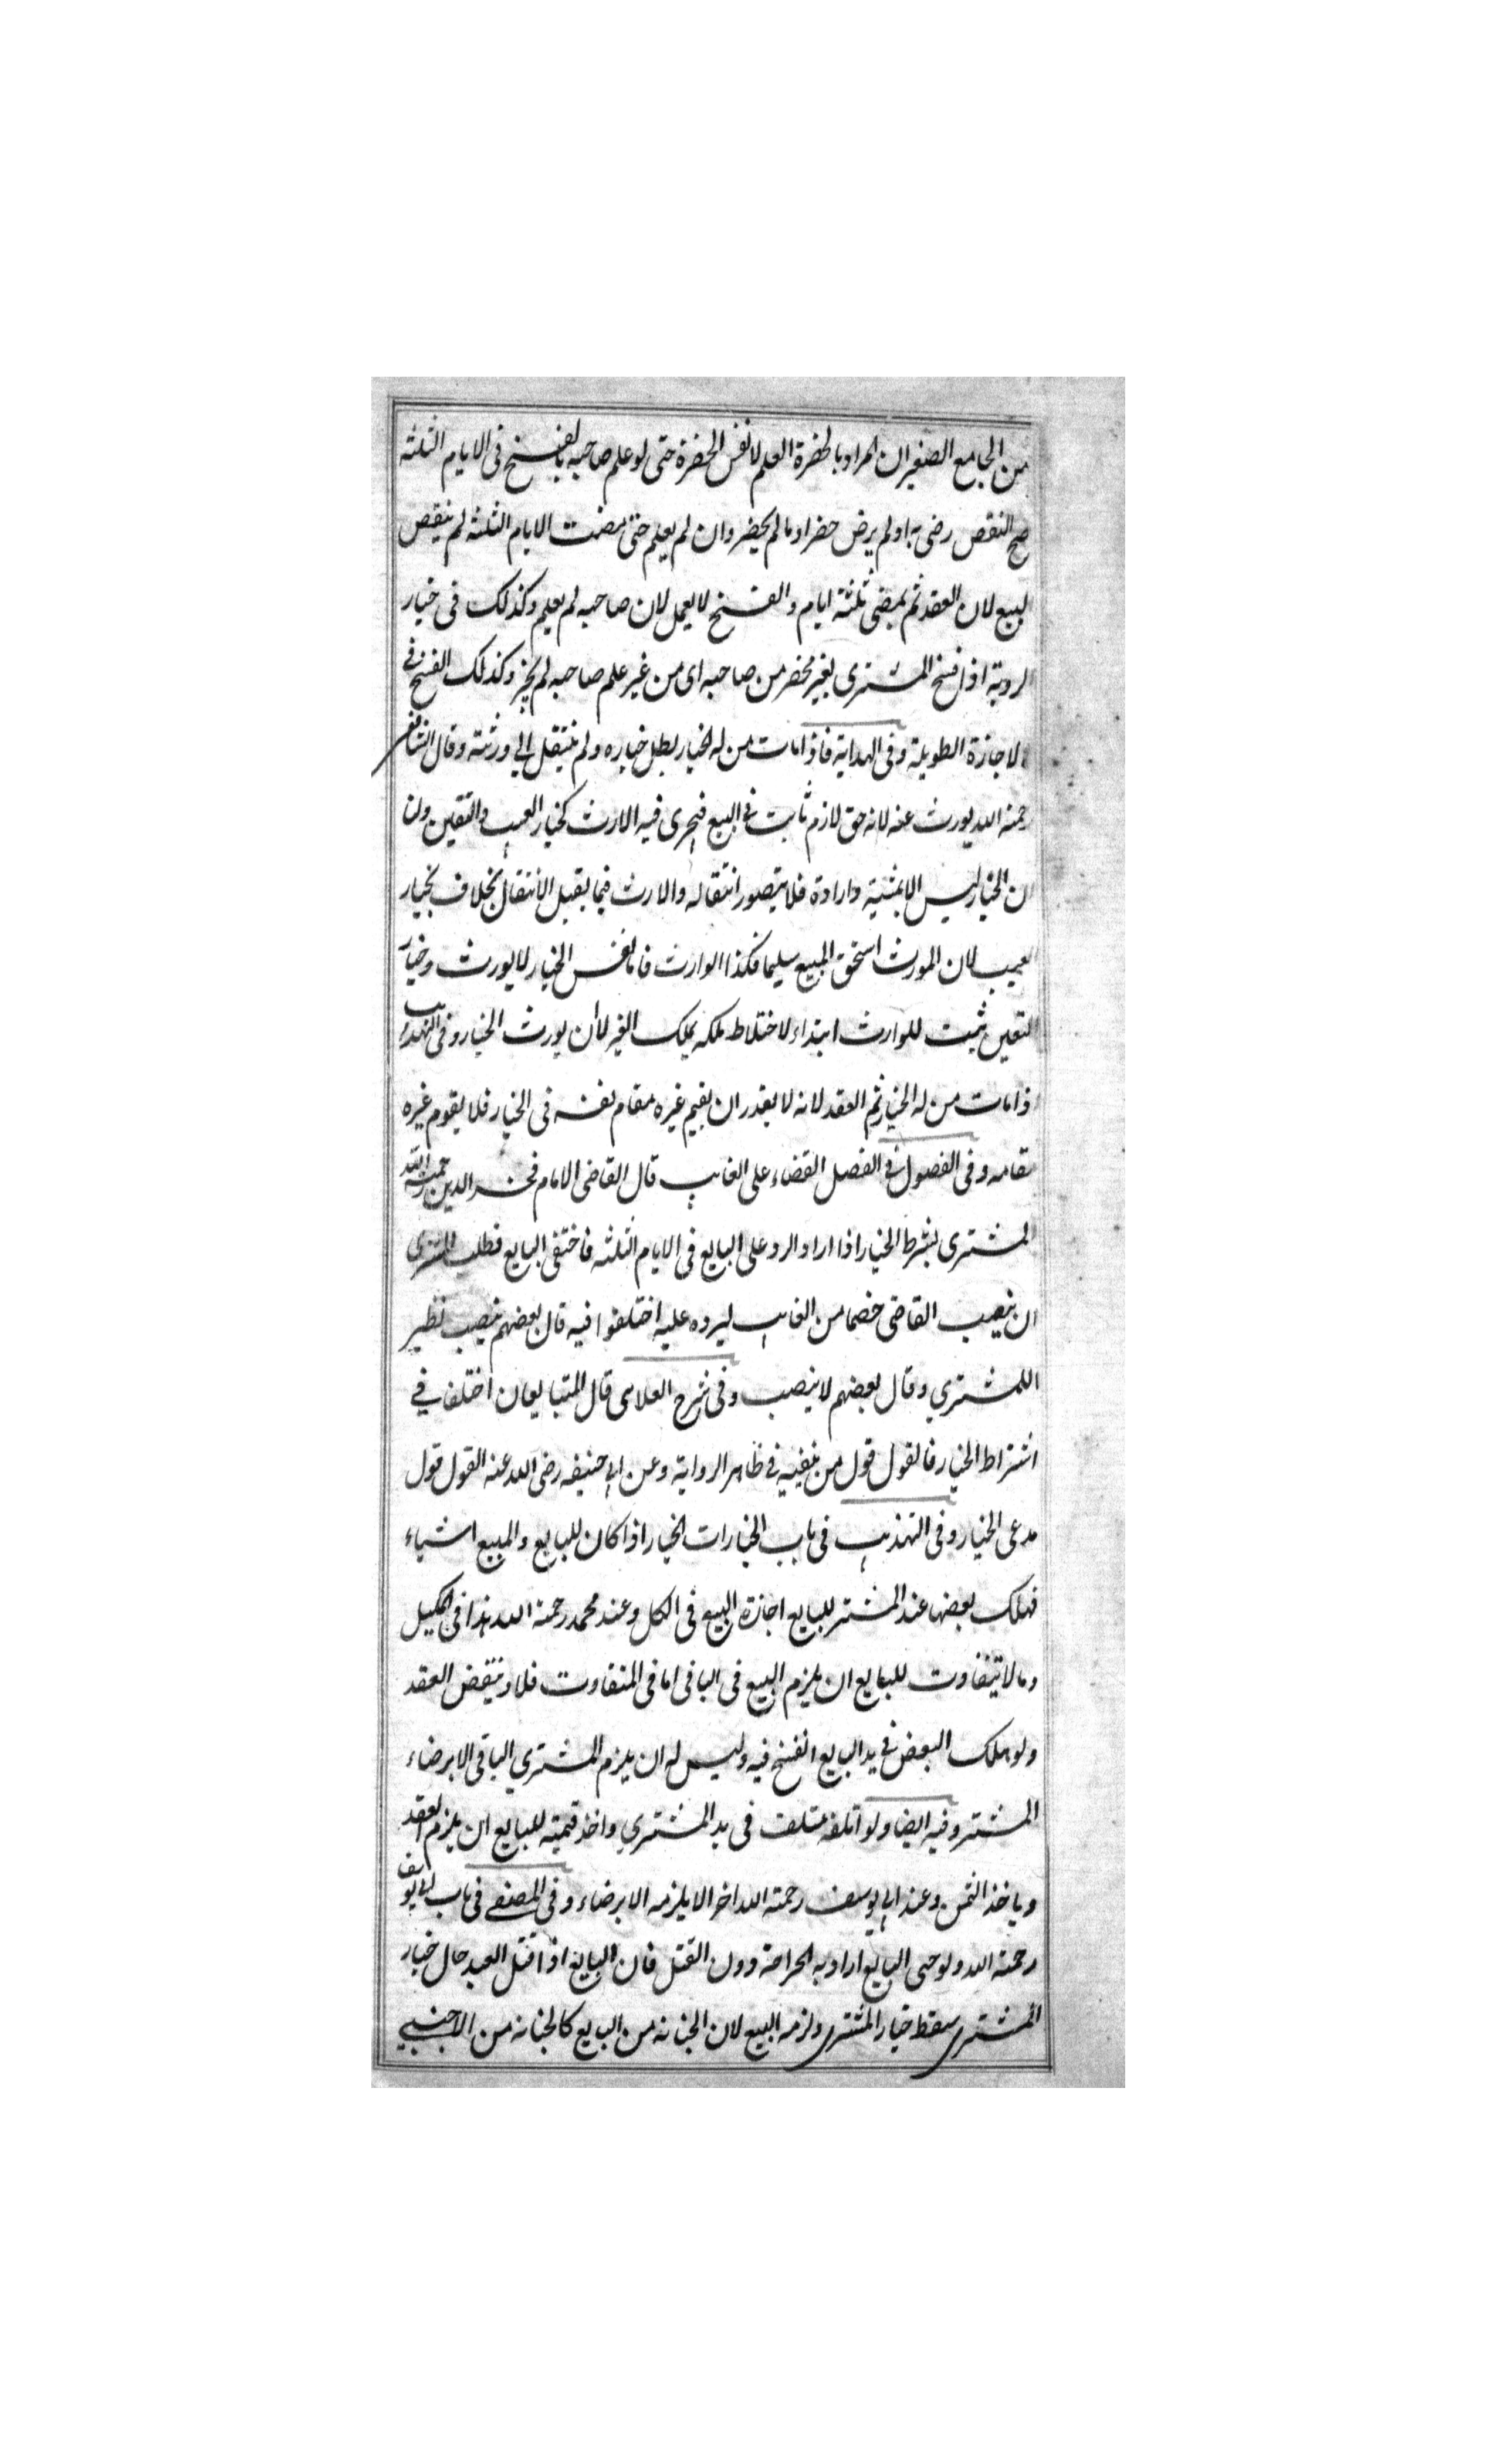 من الجامع الصغير ان المراد بالحضرة العلم لا نفس الحضرة حتى لو علم صاحبه بالفسخ فى الايام الثلثة
صح النقص رضى به او لم يرض حضر او ما لم يحضر وان لم يعلم حتى مضت الايام الثلثة لم ينقص
لبيع لان العقد تم بمضى ثلثة ايام والفسخ لا يعمل لان صاحبه لم يعلم وكذلك فى خيار
لروية اذا فسخ المشترى بغير محضر من صاحبه اى من غير علم صاحبه لم يجز وكذلك الفسخ فى
الاجازة الطويلة وفى الهداية فاذا مات من له الخيار بطل خياره ولم ينتقل الى ورثته وقال الشافعى
رحمة الله يورث عنه لانه حق لازم ثابت فى البيع فيجرى فيه الارث كخيار العيب والتعين ولنا
ان الخيار ليس الا بمشية وارادة فلا يتصور انتقاله والارث فيما يقبل الانتقال بخلاف خيار
لعيب لان المورث استحق المبيع سليما فكذا الوارث فاما نفس الخيار لا يورث وخيار
لتعين ثبت للوارث ابتداء لاختلاط ملكه بملك الغير لا ان يورث الخيار وفى التهذيب
اذا مات من له الخيار تم العقد لانه لا يقدر ان يقيم غيره مقام نفسه فى الخيار فلا يقوم غيره
مقامه وفى الفصول فى الفصل القضاء على الغايب قال القاضى الامام فخر الدين رحمة الله
المشترى بشرط الخيار اذا اراد الرد على البايع فى الايام الثلثه فاختفى البايع فطلب المشترى
ان ينصب القاضى خصما من الغايب ليرده عليه اختلفوا فيه قال بعضهم ينصب نظير
اللمشتري وقال بعضهم لا ينصب وفى شرح العلاى قال المتبايعان اختلفا في
اشتراط الخيار فالقول قول من ينفيه فى ظاهر الرواية وعن ابى حنيفه رضى الله عنه القول قول
مدعى الخيار وفى التهذيب فى باب الخيارات الخيار اذا كان للبايع والمبيع اشياء
فهلك بعضها عند المشتر للبايع اجازة البيع فى الكل وعند محمد رحمة الله هذا فى المكيل
وما لا يتفاوت للبايع ان يلزم البيع فى الباقى اما فى المتفاوت فلا وينتقض العقد
ولو هلك البعض فى يد البايع انفسخ فيه وليس له ان يلزم المشتري الباقى الا برضاء
المشتر وفيه ايضا ولو اتلفه متلف فى يد المشتري واخذ قيمته للبايع ان يلزم العقد
وياخذ الثمن وعند ابى يوسف رحمة الله اخر الا يلزمه الا برضاء وفى المصفى فى باب ابى يوسف
رحمة الله ولو جنى البايع اراد به الجراحة دون القتل فان البايع اذا قتل العبد حال خيار
المشترى سقط خيار المشترى ولزمه البيع لان الجنايه من البايع كالجنايه من الاجنبي